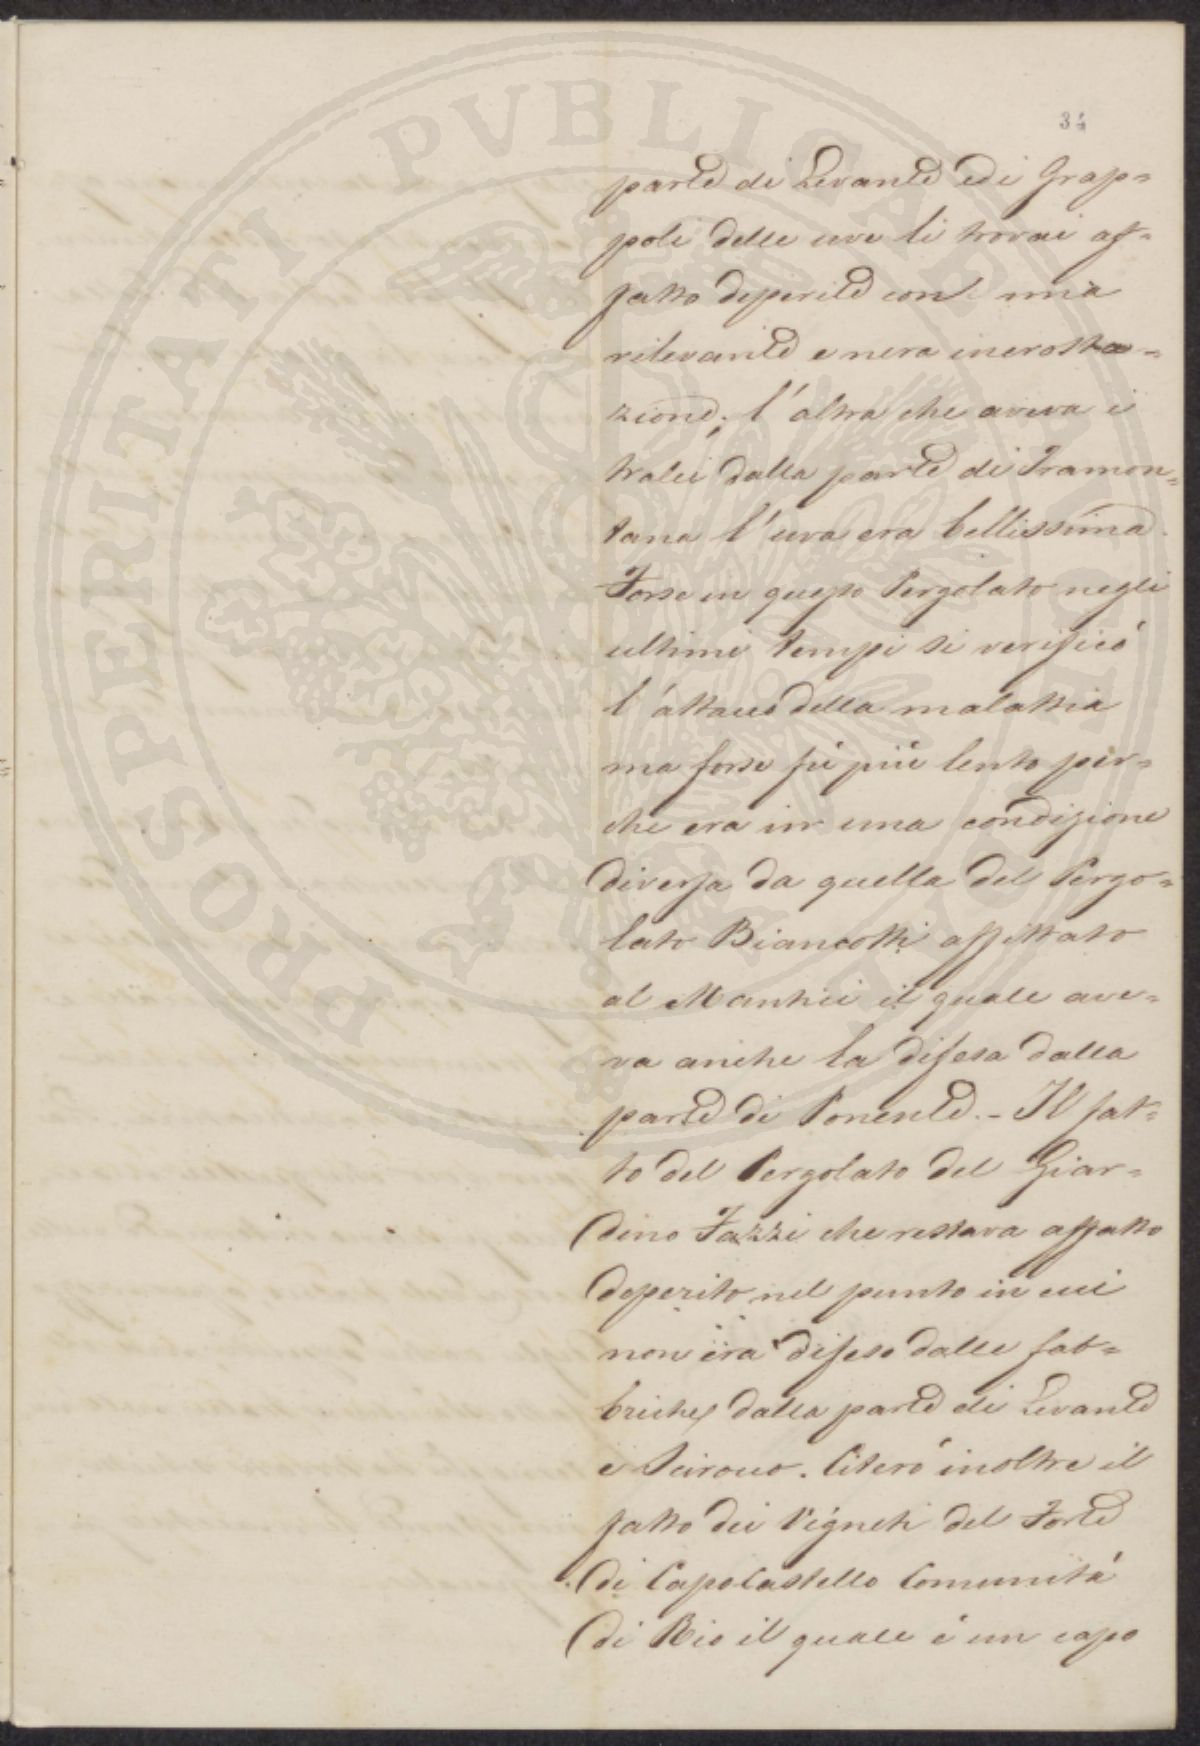 34
parte di Levante ed i Grap=
poli delle uve li trovai af=
fatto deperite con una
rilevante e nera incrosta=
zione; l'altra che aveva i
tralci dalla parte di Tramon=
tana l'uva era bellissima.
Forse in questo Pergolato negli
ultimi tempi si verificó
l'attacco della malattia
ma forse fú piú lento per=
che era in una condizione
diversa da quella del Pergo=
lato Biancotti affittato
al Mantici il quale ave=
va anche la difesa dalla
parte di Ponente. - Il fat=
to del Pergolato del Giar=
dino Fazzi che restava affatto
deperito nel punto in cui
non era difeso dalle fab=
briche, dalla parte di Levante
e Scirocco. Citeró inoltre il
fatto dei Vigneti del Forte
di Capo Castello Comunitá
di Rio il quale é un capo
PROSPERITATI PVBLICAE